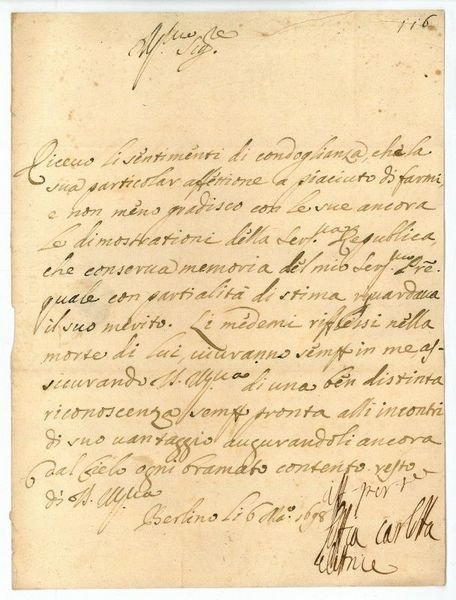 116
Ill.mo Sig.re
Riceuo li sentimenti di condoglianza, che la
sua particolar affettione a piaciuto di farmi,
e non meno gradisco con le sue ancora
le dimostrationi della Ser.ma Republica,
che conserua memoria del mio Ser.mo Prē
quale con partialità di stima riguardaua
il suo merito. Li medemi riflessi nella
morte di lui, uiuranno semp in me as=
sicurando V.S. Ill.ma di una ben distinta
riconoscenza semp pronta alli incontri
di suo uantaggio augurandoli ancora
dal Cielo ogni bramato contento resto
di V.S. Ill.ma
Berlino li 6 1698
Carlotta